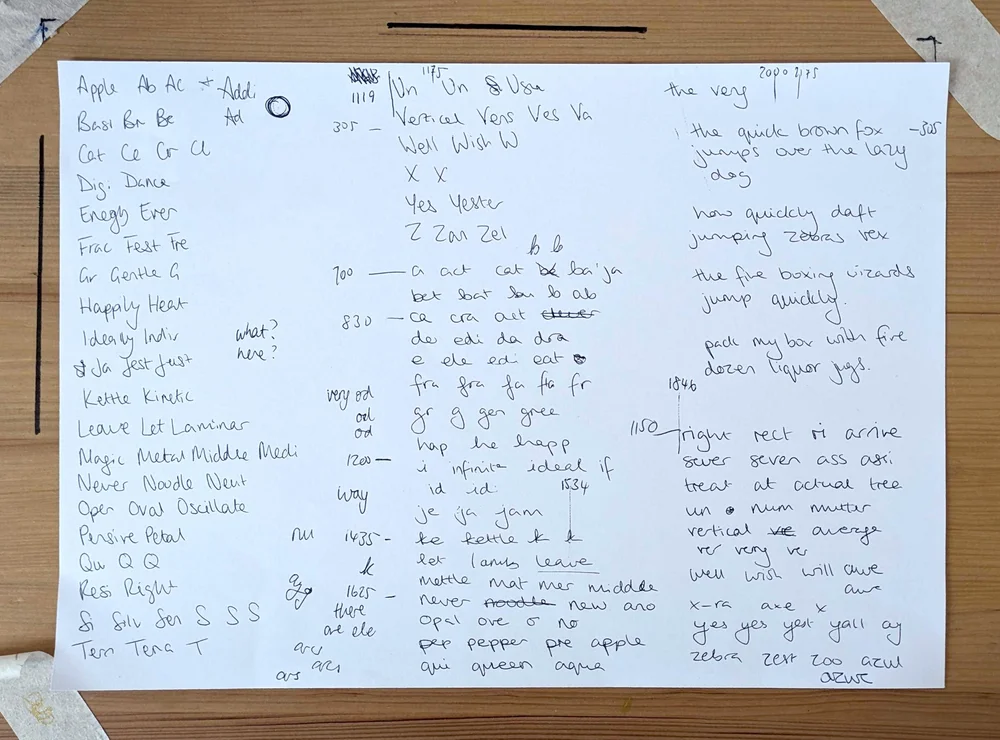 Apple Ab Ac + Addi
Basi Bn Be Ad
Cat Ce Cr Cl
Digi Dance
Enegy Ever
Frac Fest Fre
Gr Gentle G
Happily Heat
Ideally Indiv
what?
here?
Ja Jest Just
Kettle Kinetic
Leave Let Laminar
Magic Metal Middle Medi
Never Noodle Neut
Oper Oval Oscillate
Pensive Petal
Qu Q Q
Resi Right
Si Silv Sen S S S
Tern Tena T
1119
305 –
700 —
830 –
very od
od
od
1200 –
way
nu 1435 -
k
1625 -
there
are ele
arcs
arcs
ars
1175
Un Un Usu
Vertical Vens Ves Va
Well Wish W
X X
Yes Yester
Z Zan Zel
b b
a act cat ba ja
bet bat bu b ab
ca cra act
de edi da dra
e ele edi eat
fra fra fa fra fr
gr g gen gree
hap he happ
i infinite ideal if
id idi 1534
je ja jam
ke kettle k k
let lamb leave
mettle mat mer middle
never noodle new ano
opal ove o no
pep pepper pre apple
qui queen aqua
the very
2090 2175
the quick brown fox -305
jumps over the lazy
dog
how quickly daft
jumping zebras vex
the five boxing wizards
jump quickly.
pack my box with five
dozen liquor jugs.
1846
1150
right rect ri arrive
sever seven ass assi
treat at actual tree
un num mutter
vertical average
ver very ver
well wish will awe
awe
x-ra axe x
yes yes yest yall ay
zebra zest zoo azul
azure